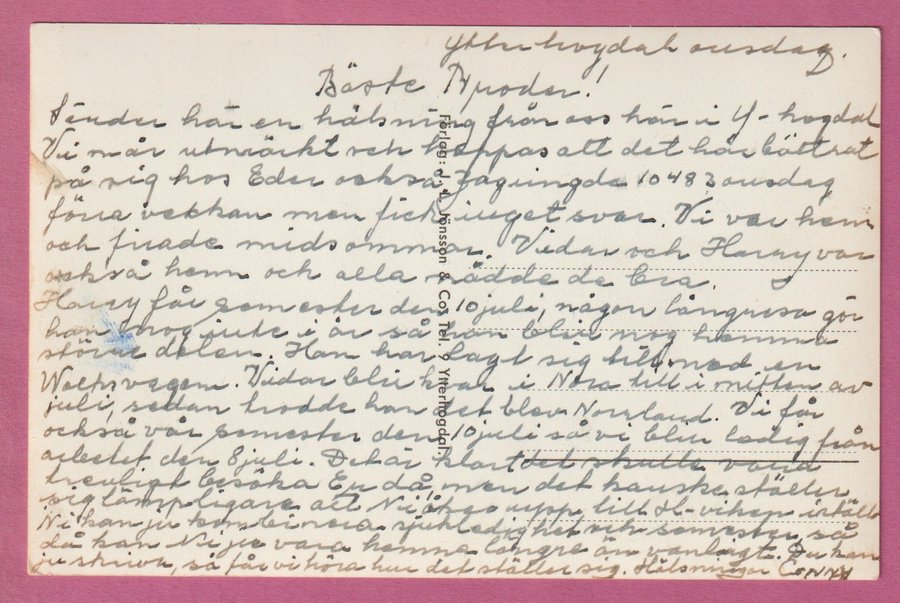 Ytterhogdal onsdag.
Bäste Broder!
Sänder här en hälsning från oss här i Y-hogdal
Vi mår utmärkt och hoppas att det har bättrat
på sig hos Eder också. Jag ringde 10483 onsdag
förra veckan men fick inget svar. Vi var hem
och firade midsommar. Vidar och Harry var
också hem och alla mådde de bra.
Harry får semester den 10 juli, någon långresa gör
han nog inte i år så han blir nog hemma
större delen. Han har lagt sig till med en
Wolksvagen. Vidar blir kvar i Nora till i mitten av
juli, sedan trodde han det blev Norrland. Vi får
också vår semester den 10 juli så vi blir ledig från
arbetet den 8 juli. Det är klart det skulle vara
trevligt besöka Er då men det kanske ställer
sig lämpligare att Ni åker upp till H-viken istället
Ni kan ju kombinera sjukledighet och semester så
då kan Ni ju vara hemma längre än vanligt. Du kan
ju skriva, så får vi höra hur det ställer sig. Hälsningar Conny
Förlag: Jönsson & Co. Tel. 9 Ytterhogdal.